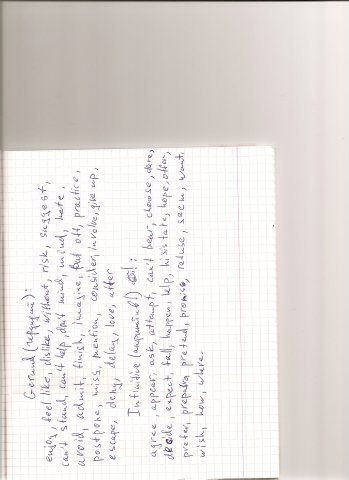 Gerund (герундий):
enjoy, feel like, dislike, without, risk, suggest,
can't stand, can't help, don't mind, mind, hate,
avoid, admit, finish, imagine, put off, practice,
postpone, miss, mention, consider, involve, give up,
escape, deny, delay, love, after
Infinitive (инфинитив!) !:
agree, appear, ask, attempt, can't bear, choose, dare,
decide, expect, fail, happen, help, hisistate, hope, offer,
prefer, prepare, pretend, promise, refuse, seem, want,
wish, how, where.